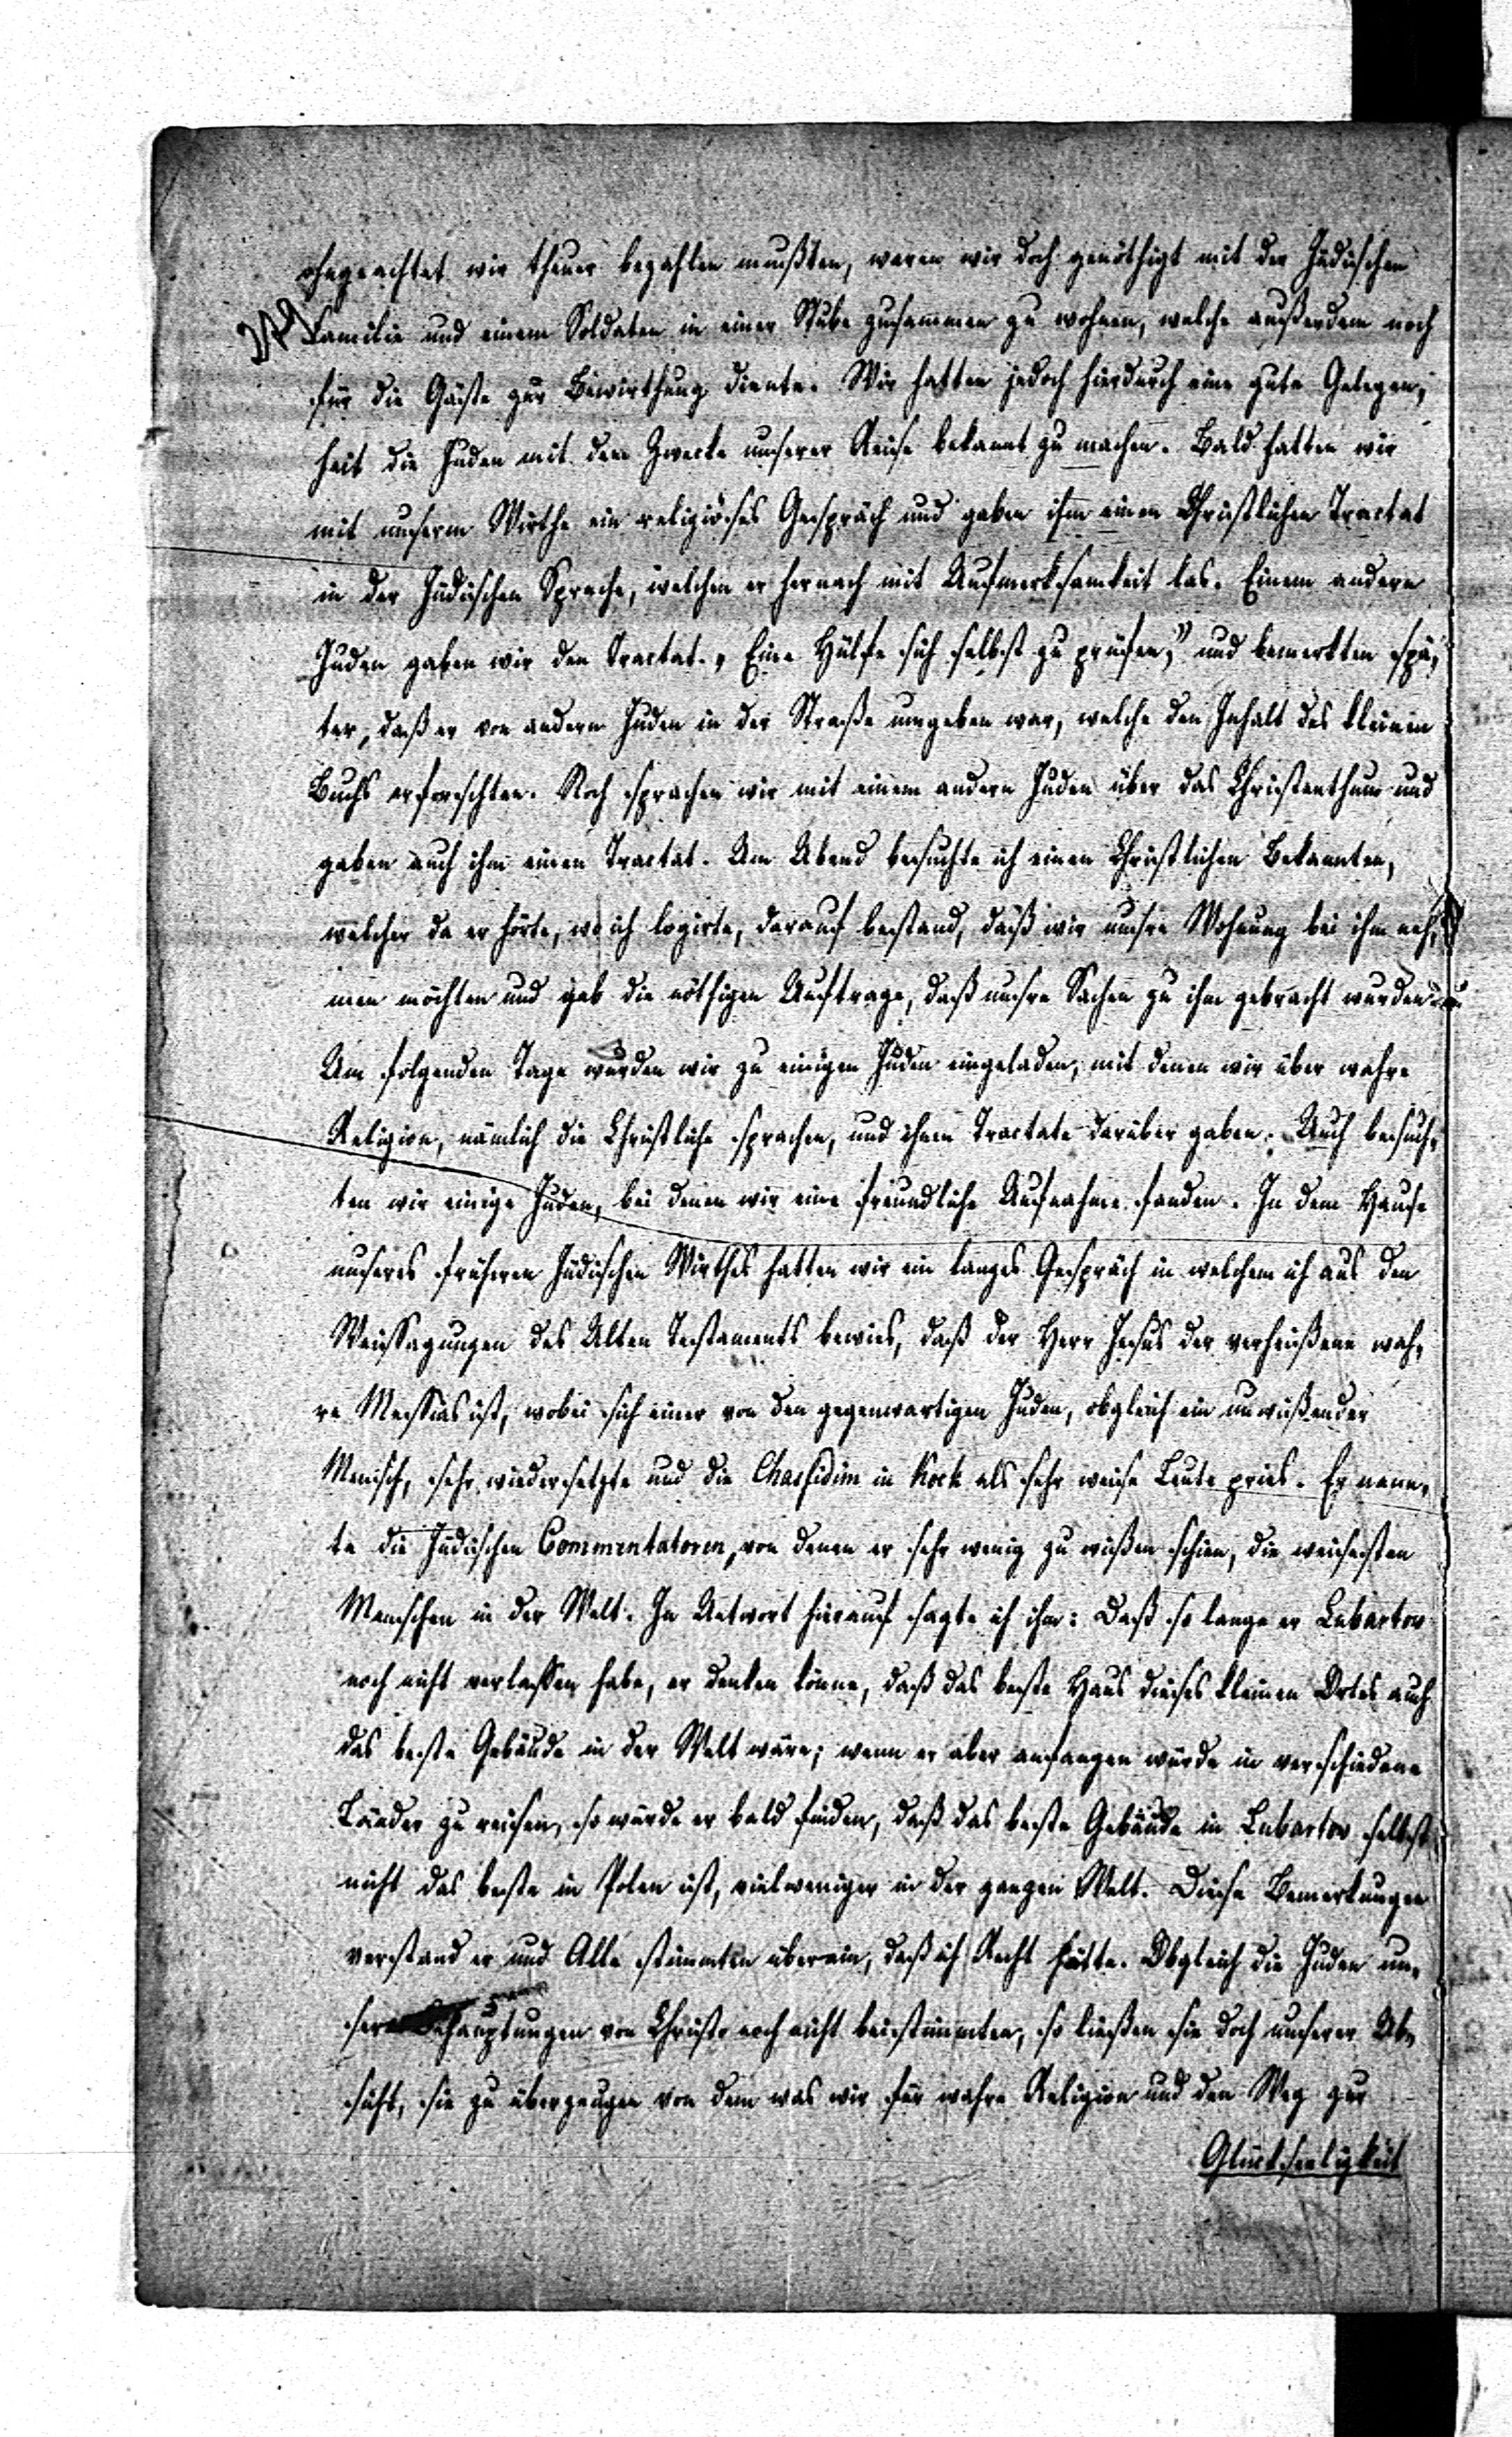 ohngeachtet wir theuer bezahlen mußten, waren wir doch genöthigt mit der Jüdischen
Familie und einem Soldaten in einer Stube zusammen zu wohnen, welche außerdem noch
für die Gäste zur Bewirthung diente. Wir hatten jedoch hierdurch eine gute Gelegen,
heit die Juden mit dem Zwecke unserer Reise bekannt zu machen. Bald hatten wir
mit unserm Wirthe ein religiöses Gespräch und gaben ihm einen Christlichen Tractat
in der Jüdischen Sprache, welchen er hernach mit Aufmerksamkeit las. Einem andern
Juden gaben wir den Tractat „Eine Hülfe sich selbst zu prüfen,” und bemerkten spä,
ter, daß er von andern Juden in der Straße umgeben war, welche den Inhalt des kleinen
Buchs erforschten. Noch sprachen wir mit einem andern Juden über das Christenthum und
gaben auch ihm einen Tractat. Am Abend besuchte ich einen Christlichen Bekannten,
welcher da er hörte, wo ich logirte, darauf bestand, daß wir unsre Wohnung bei ihm neh,
men möchten und gab die nöthigen Auftrage, daß unsre Sachen zu ihm gebracht wurden.
Am folgenden Tage wurden wir zu einigen Juden eingeladen, mit denen wir über wahre
Religion, nämlich die Christliche sprachen, und ihnen Tractate darüber gaben. Auch besuch,
ten wir einige Juden, bei denen wir eine freundliche Aufnahme fanden. In dem Hause
unseres früheren Jüdischen Wirthes hatten wir ein langes Gespräch in welchem ich aus den
Weissagungen des Alten Testaments bewies, daß der Herr Jesus der verheißene wah,
re Messias ist, wobei sich einer von den gegenwartigen Juden, obgleich ein unwißender
Mensch, sehr wiedersetzte und die Chassidim in Kock als sehr weise Leute pries. Er nann,
te die Jüdischen Commentatoren, von denen er sehr wenig zu wißen schien, die weisesten
Menschen in der Welt. In Antwort hierauf sagte ich ihm: Daß so lange er Lubartow
noch nicht verlassen habe, er denken könne, daß das beste Haus dieses kleinen Ortes auch
das beste Gebäude in der Welt wäre; wenn er aber anfangen würde in verschiedene
Länder zu reisen, so würde er bald finden, daß das beste Gebäude in Lubartow selbst
nicht das beste in Polen ist, vielweniger in der ganzen Welt. Diese Bemerkungen
verstand er und Alle stimmten überein, daß ich Recht hätte. Obgleich die Juden un,
sern Behauptungen von Christo noch nicht beistimmten, so ließen sie doch unserer Ab,
sicht, sie zu überzeugen von dem was wir für wahre Religion und den Weg zur
Glückseeligkeit